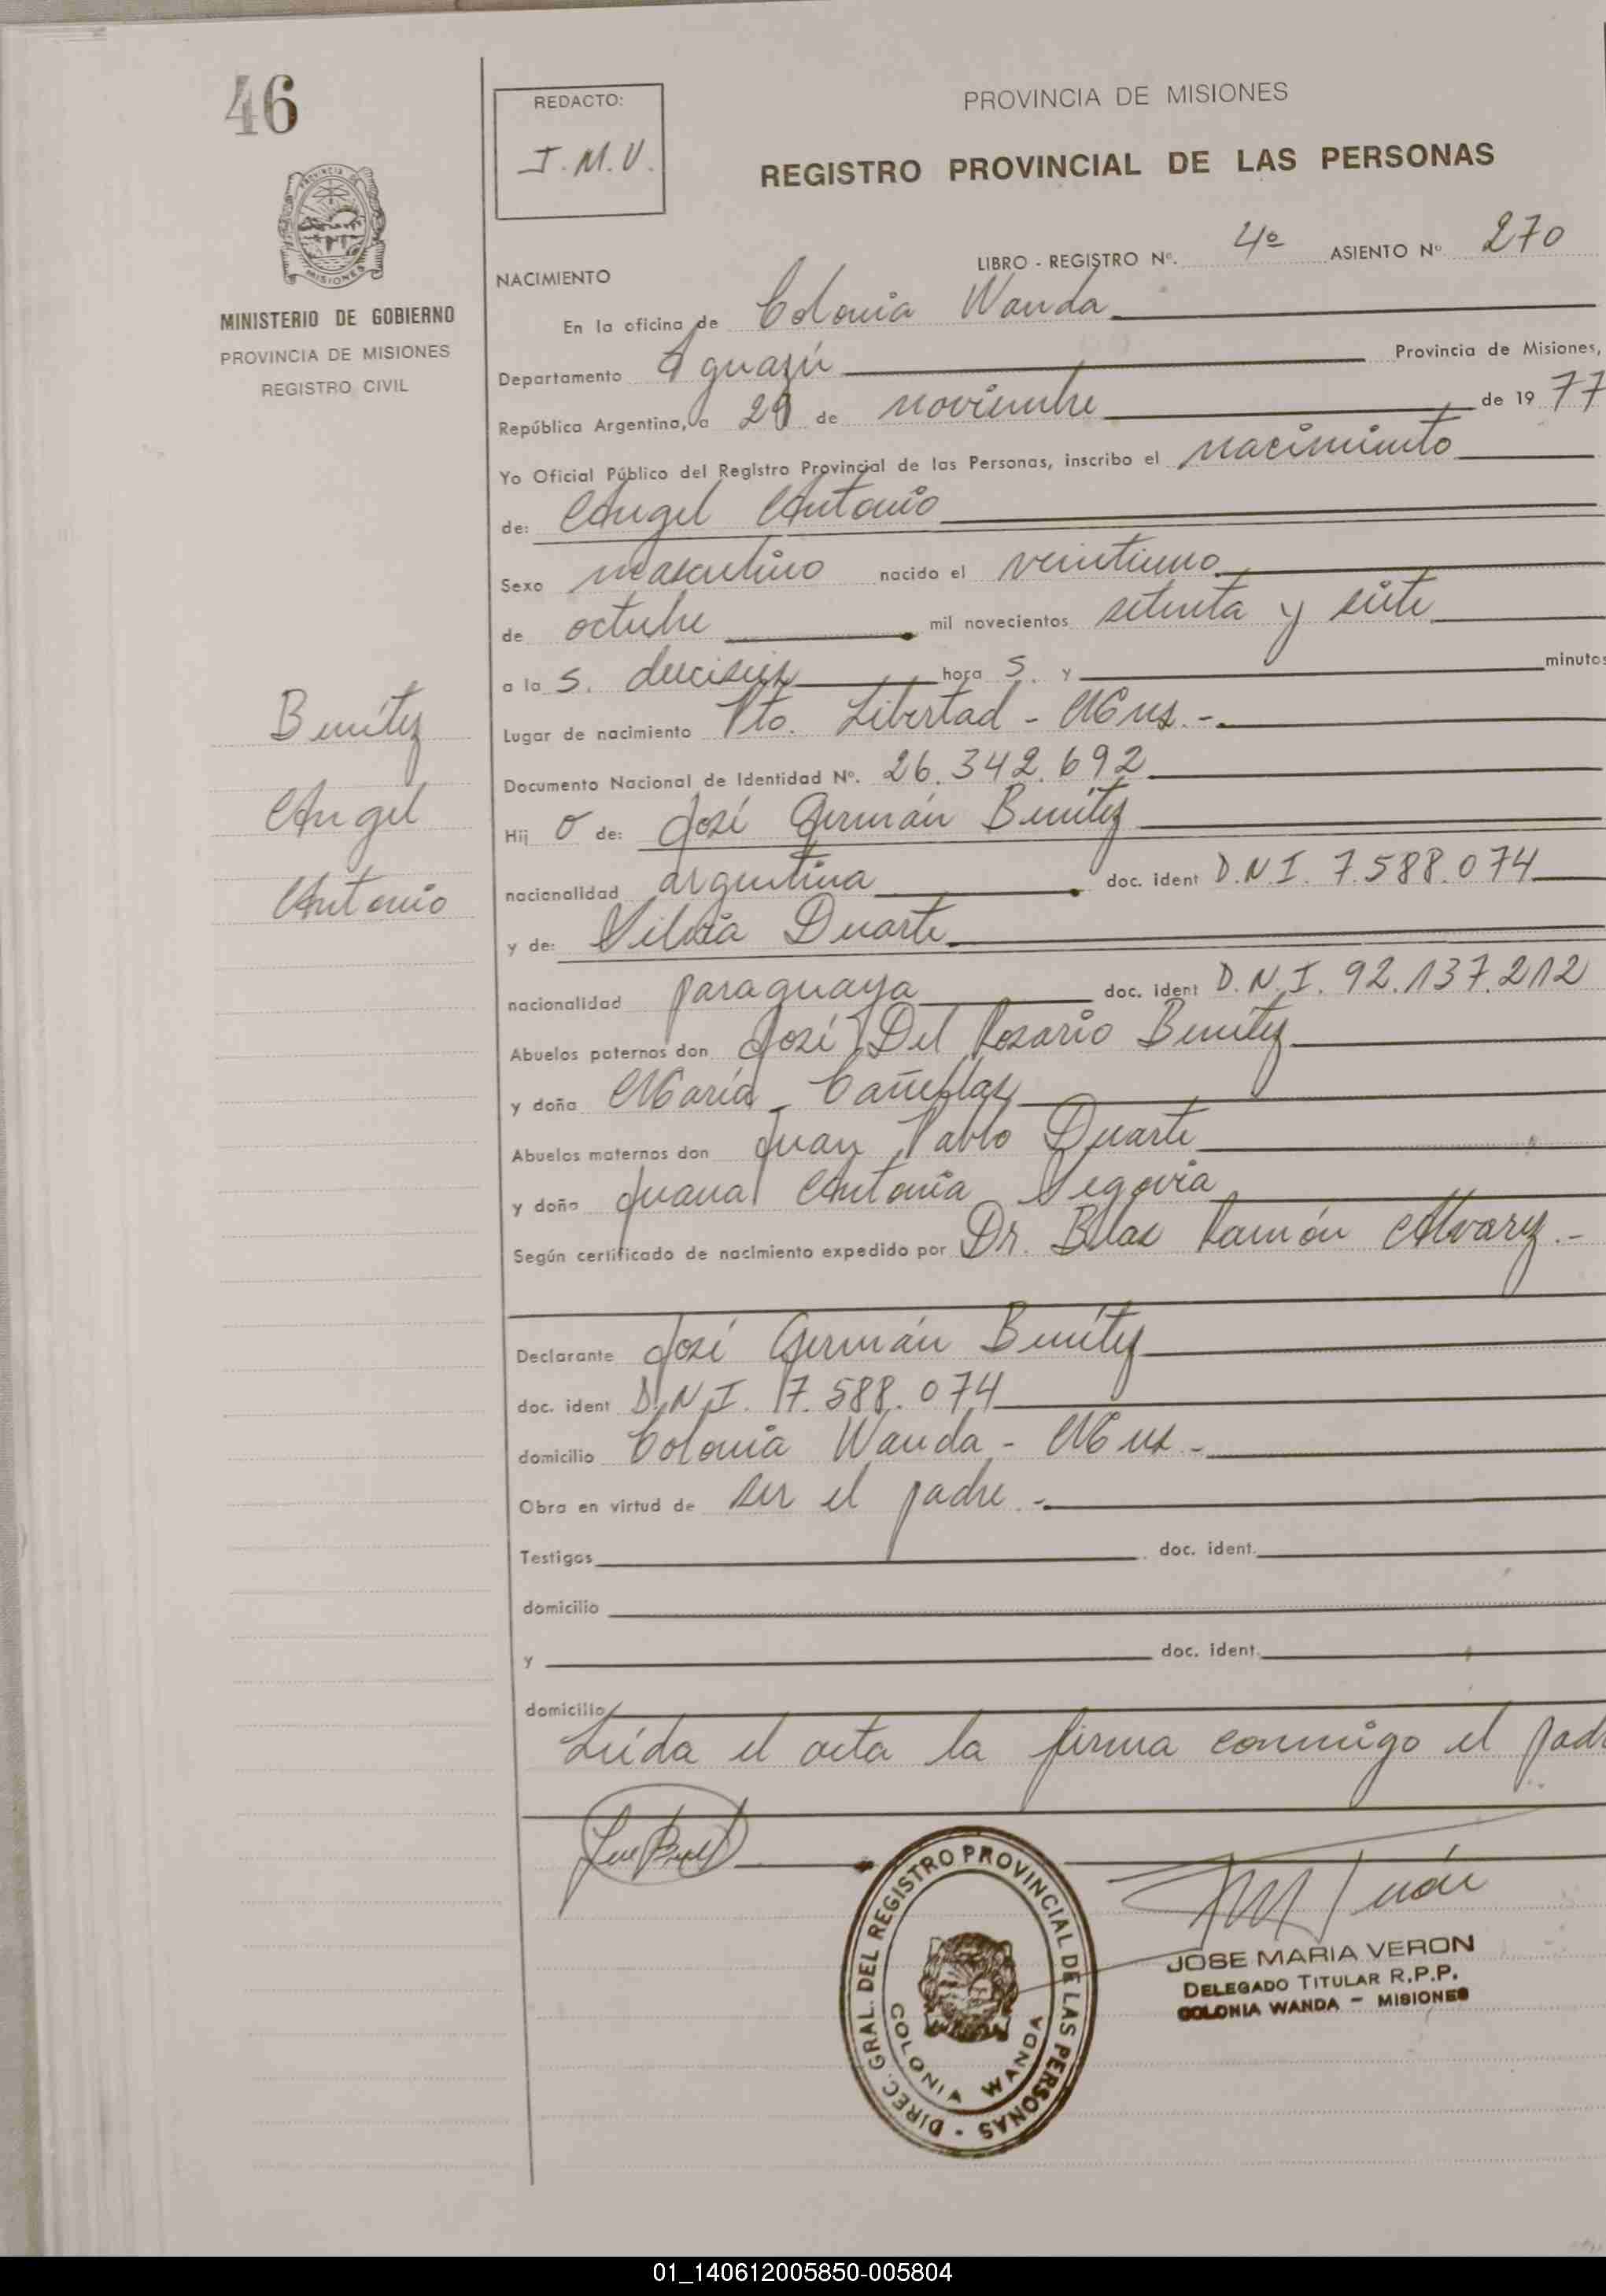 46
REDACTO:
J. M. V.
PROVINCIA DE MISIONES
REGISTRO PROVINCIAL DE LAS PERSONAS
PROVINCIA DE
MISIONES
MINISTERIO DE GOBIERNO
PROVINCIA DE MISIONES
REGISTRO CIVIL
NACIMIENTO
LIBRO - REGISTRO Nº. 4º ASIENTO Nº 270
En la oficina de Colonia Wanda
Departamento Iguazú Provincia de Misiones,
República Argentina, a 29 de noviembre de 19 77
Yo Oficial Público del Registro Provincial de las Personas, inscribo el nacimiento
de: Angel Antonio
Sexo masculino nacido el veintiuno
de octubre mil novecientos setenta y siete
a la s. dieciseis hora s. y minutos
Lugar de nacimiento Pto. Libertad - Mnes.-
Documento Nacional de Identidad Nº. 26.342.692
Hij o de: José Germán Benítez
nacionalidad argentina doc. ident D.N.I. 7.588.074
y de: Silvia Duarte
nacionalidad paraguaya doc. ident D.N.I. 92.137.212
Abuelos paternos don José Del Rosario Benítez
y doña María Cañellas
Abuelos maternos don Juan Pablo Duarte
y doña Juana Antonia Segovia
Según certificado de nacimiento expedido por Dr. Blas Ramón Alvarez.-
Benítez
Angel
Antonio
Declarante José Germán Benítez
doc. ident D.N.I. 7.588.074
domicilio Colonia Wanda - Mnes.-
Obra en virtud de ser el padre.-
Testigos doc. ident.
domicilio
y doc. ident.
domicilio
Leída el acta la firma conmigo el
DIREC. GRAL. DEL REGISTRO PROVINCIAL DE LAS PERSONAS -
COLONIA WANDA
JOSE MARIA VERON
DELEGADO TITULAR R.P.P.
COLONIA WANDA - MISIONES
01_140612005850-005804